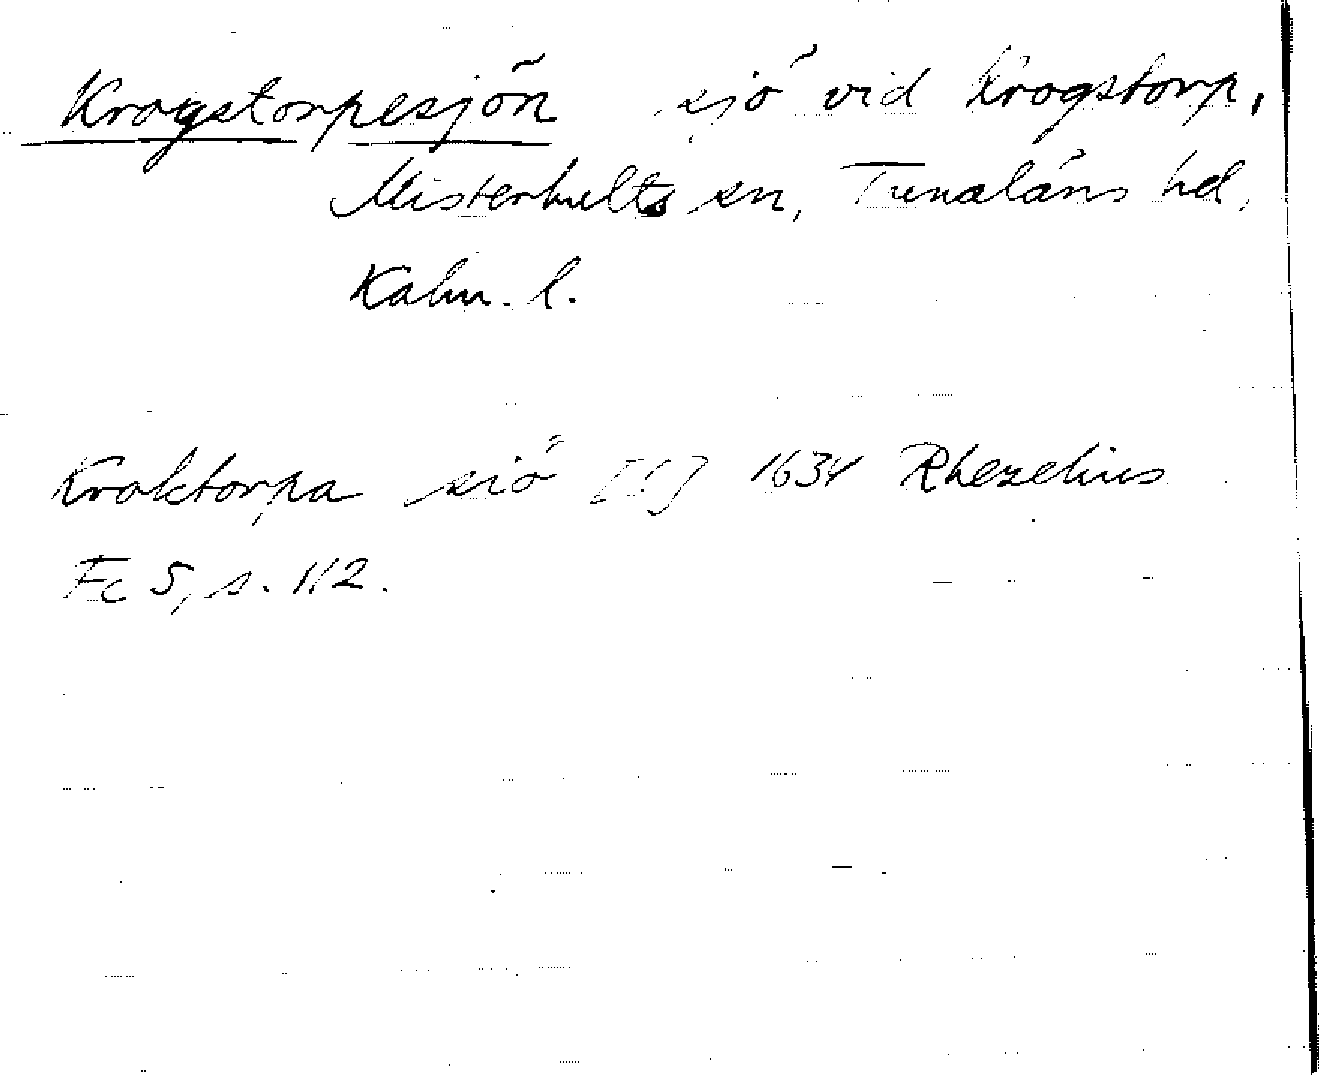 Krogstorpesjön sjö vid Krogstorp,
Misterhults sn, Tunaläns hd,
Kalm. l.
Kroktorpa siö [!] 1634 Rhezelius
Fc 5, s. 112.